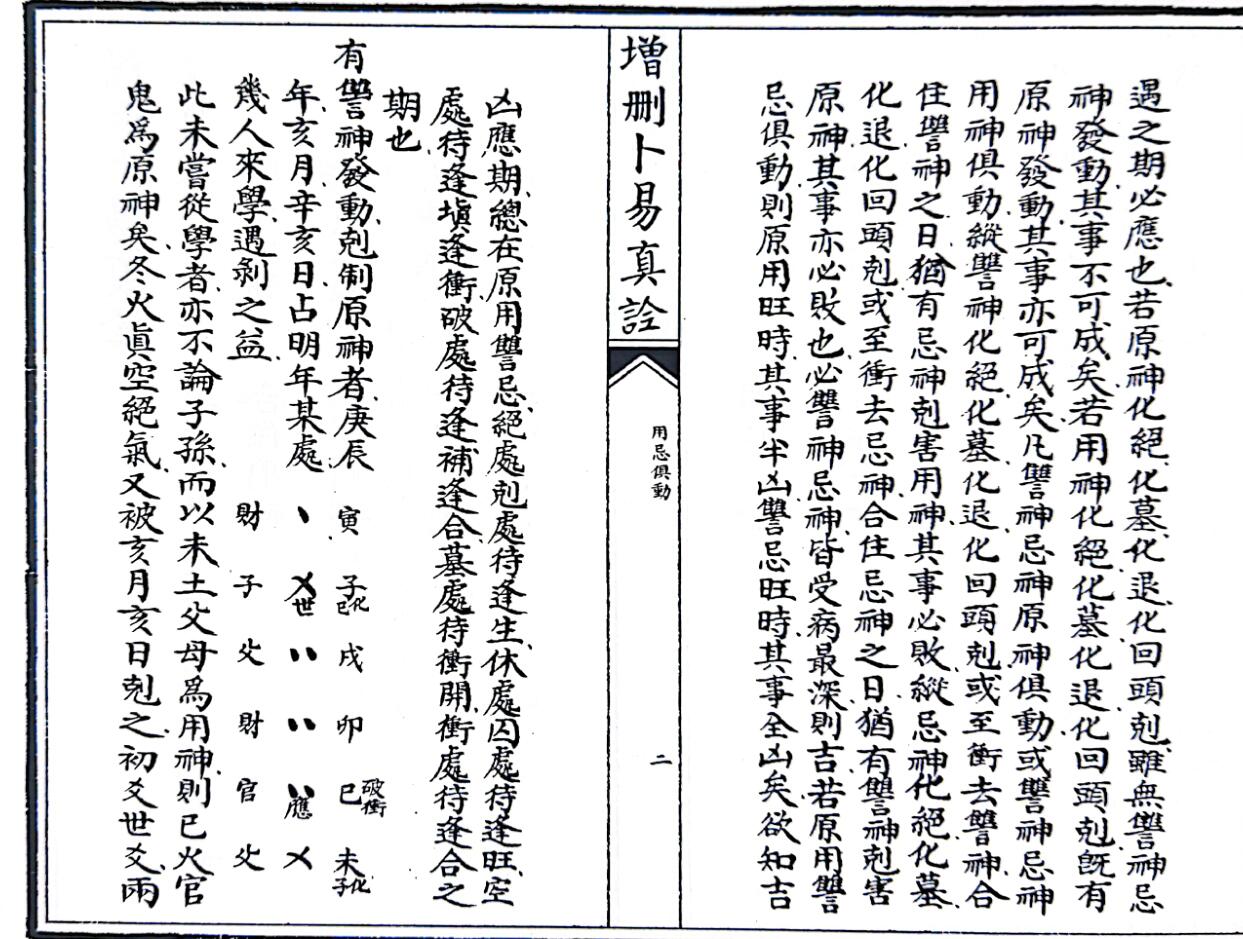 遇之期必應也若原神化絕化墓化退化回頭剋雖無讐神忌
神發動其事不可成矣若用神化絕化墓化退化回頭剋既有
原神發動其事亦可成矣凡讐神忌神原神俱動或讐神忌神
用神俱動縱讐神化絕化墓化退化回頭剋或至衝去讐神合
住讐神之日猶有忌神剋害用神其事必敗縱忌神化絕化墓
化退化回頭剋或至衝去忌神合住忌神之日猶有讐神剋害
原神其事亦必敗也必讐神忌神皆受病最深則吉若原用讐
忌俱動則原用旺時其事半凶讐忌旺時其事全凶矣欲知吉
增刪卜易真詮
用忌俱動
二
凶應期總在原用讐忌絕處剋處待逢生休處囚處待逢旺空
處待逢塡逢衝破處待逢補逢合墓處待衝開衝處待逢合之
期也
有讐神發動剋制原神者庚辰 寅 子化巳 戌 卯 巳破衝 未化子
年亥月辛亥日占明年某處 丶 乂世 〃 〃 〃應 乂
幾人來學遇剝之益 財 子 父 財 官 父
此未嘗從學者亦不論子孫而以未土父母爲用神則巳火官
鬼爲原神矣冬火眞空絕氣又被亥月亥日剋之初爻世爻兩